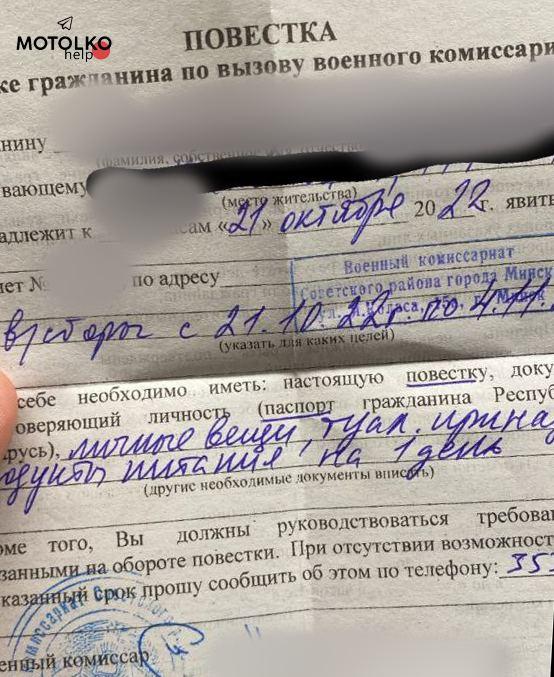 MOTOLKO
help
ПОВЕСТКА
ке гражданина по вызову военного комиссари
нину
(фамилия, собственное имя, отчество
вающему
(место жительства)
адлежит к сам «21» октября 2022 г. явить
Военный комиссариат
Советского района города Минск
нет № по адресу
ул. Я.Коласа,
в/сборы с 21.10.22г. по 4.11.
(указать для каких целей)
себе необходимо иметь: настоящую повестку, доку
оверяющий личность (паспорт гражданина Респуб
арусь), личные вещи, туал. принад
одукты питания на 1 день
(другие необходимые документы вписать)
оме того, Вы должны руководствоваться требован
занными на обороте повестки. При отсутствии возможност
казанный срок прошу сообщить об этом по телефону: 35
енный комиссар